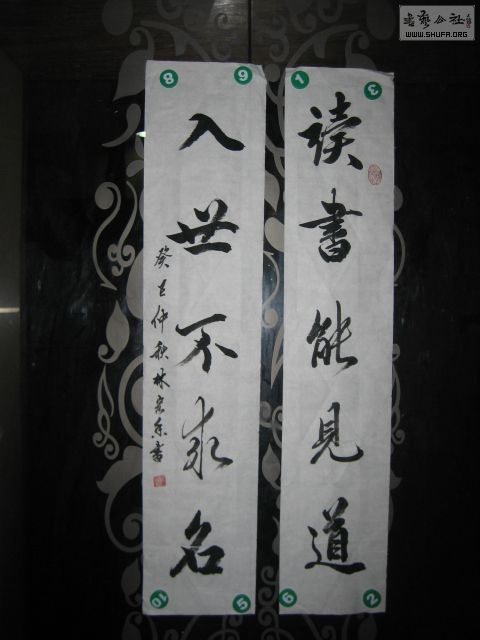 读书能见道
入世不求名
癸巳仲秋林宗乐书
书艺公社
WWW.SHUFA.ORG
1
3
6
2
8
9
10
5